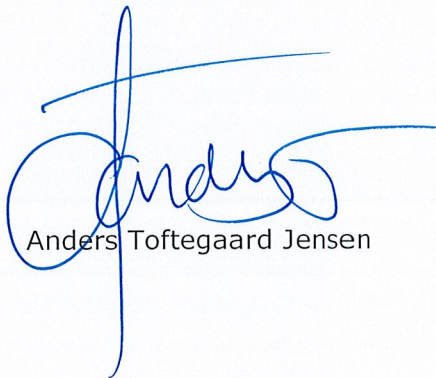 Anders
Anders Toftegaard Jensen